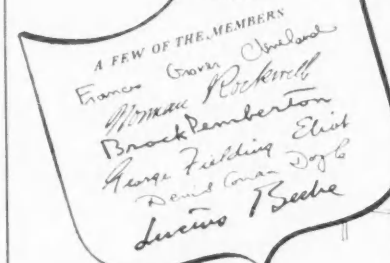 A FEW OF THE MEMBERS
Francis Grover Cleveland
Norman Rockwell
Brock Pemberton
George Fielding Eliot
Denis Conan Doyle
Lucius Beebe